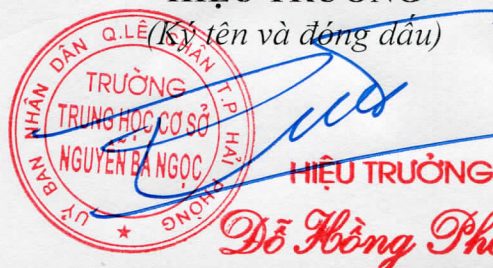 HIỆU TRƯỞNG
(Ký tên và đóng dấu)
ỦY BAN NHÂN DÂN Q.LÊ CHÂN T.P HẢI PHÒNG
TRƯỜNG
TRUNG HỌC CƠ SỞ
NGUYỄN BÁ NGỌC
HIỆU TRƯỞNG
Đỗ Hồng